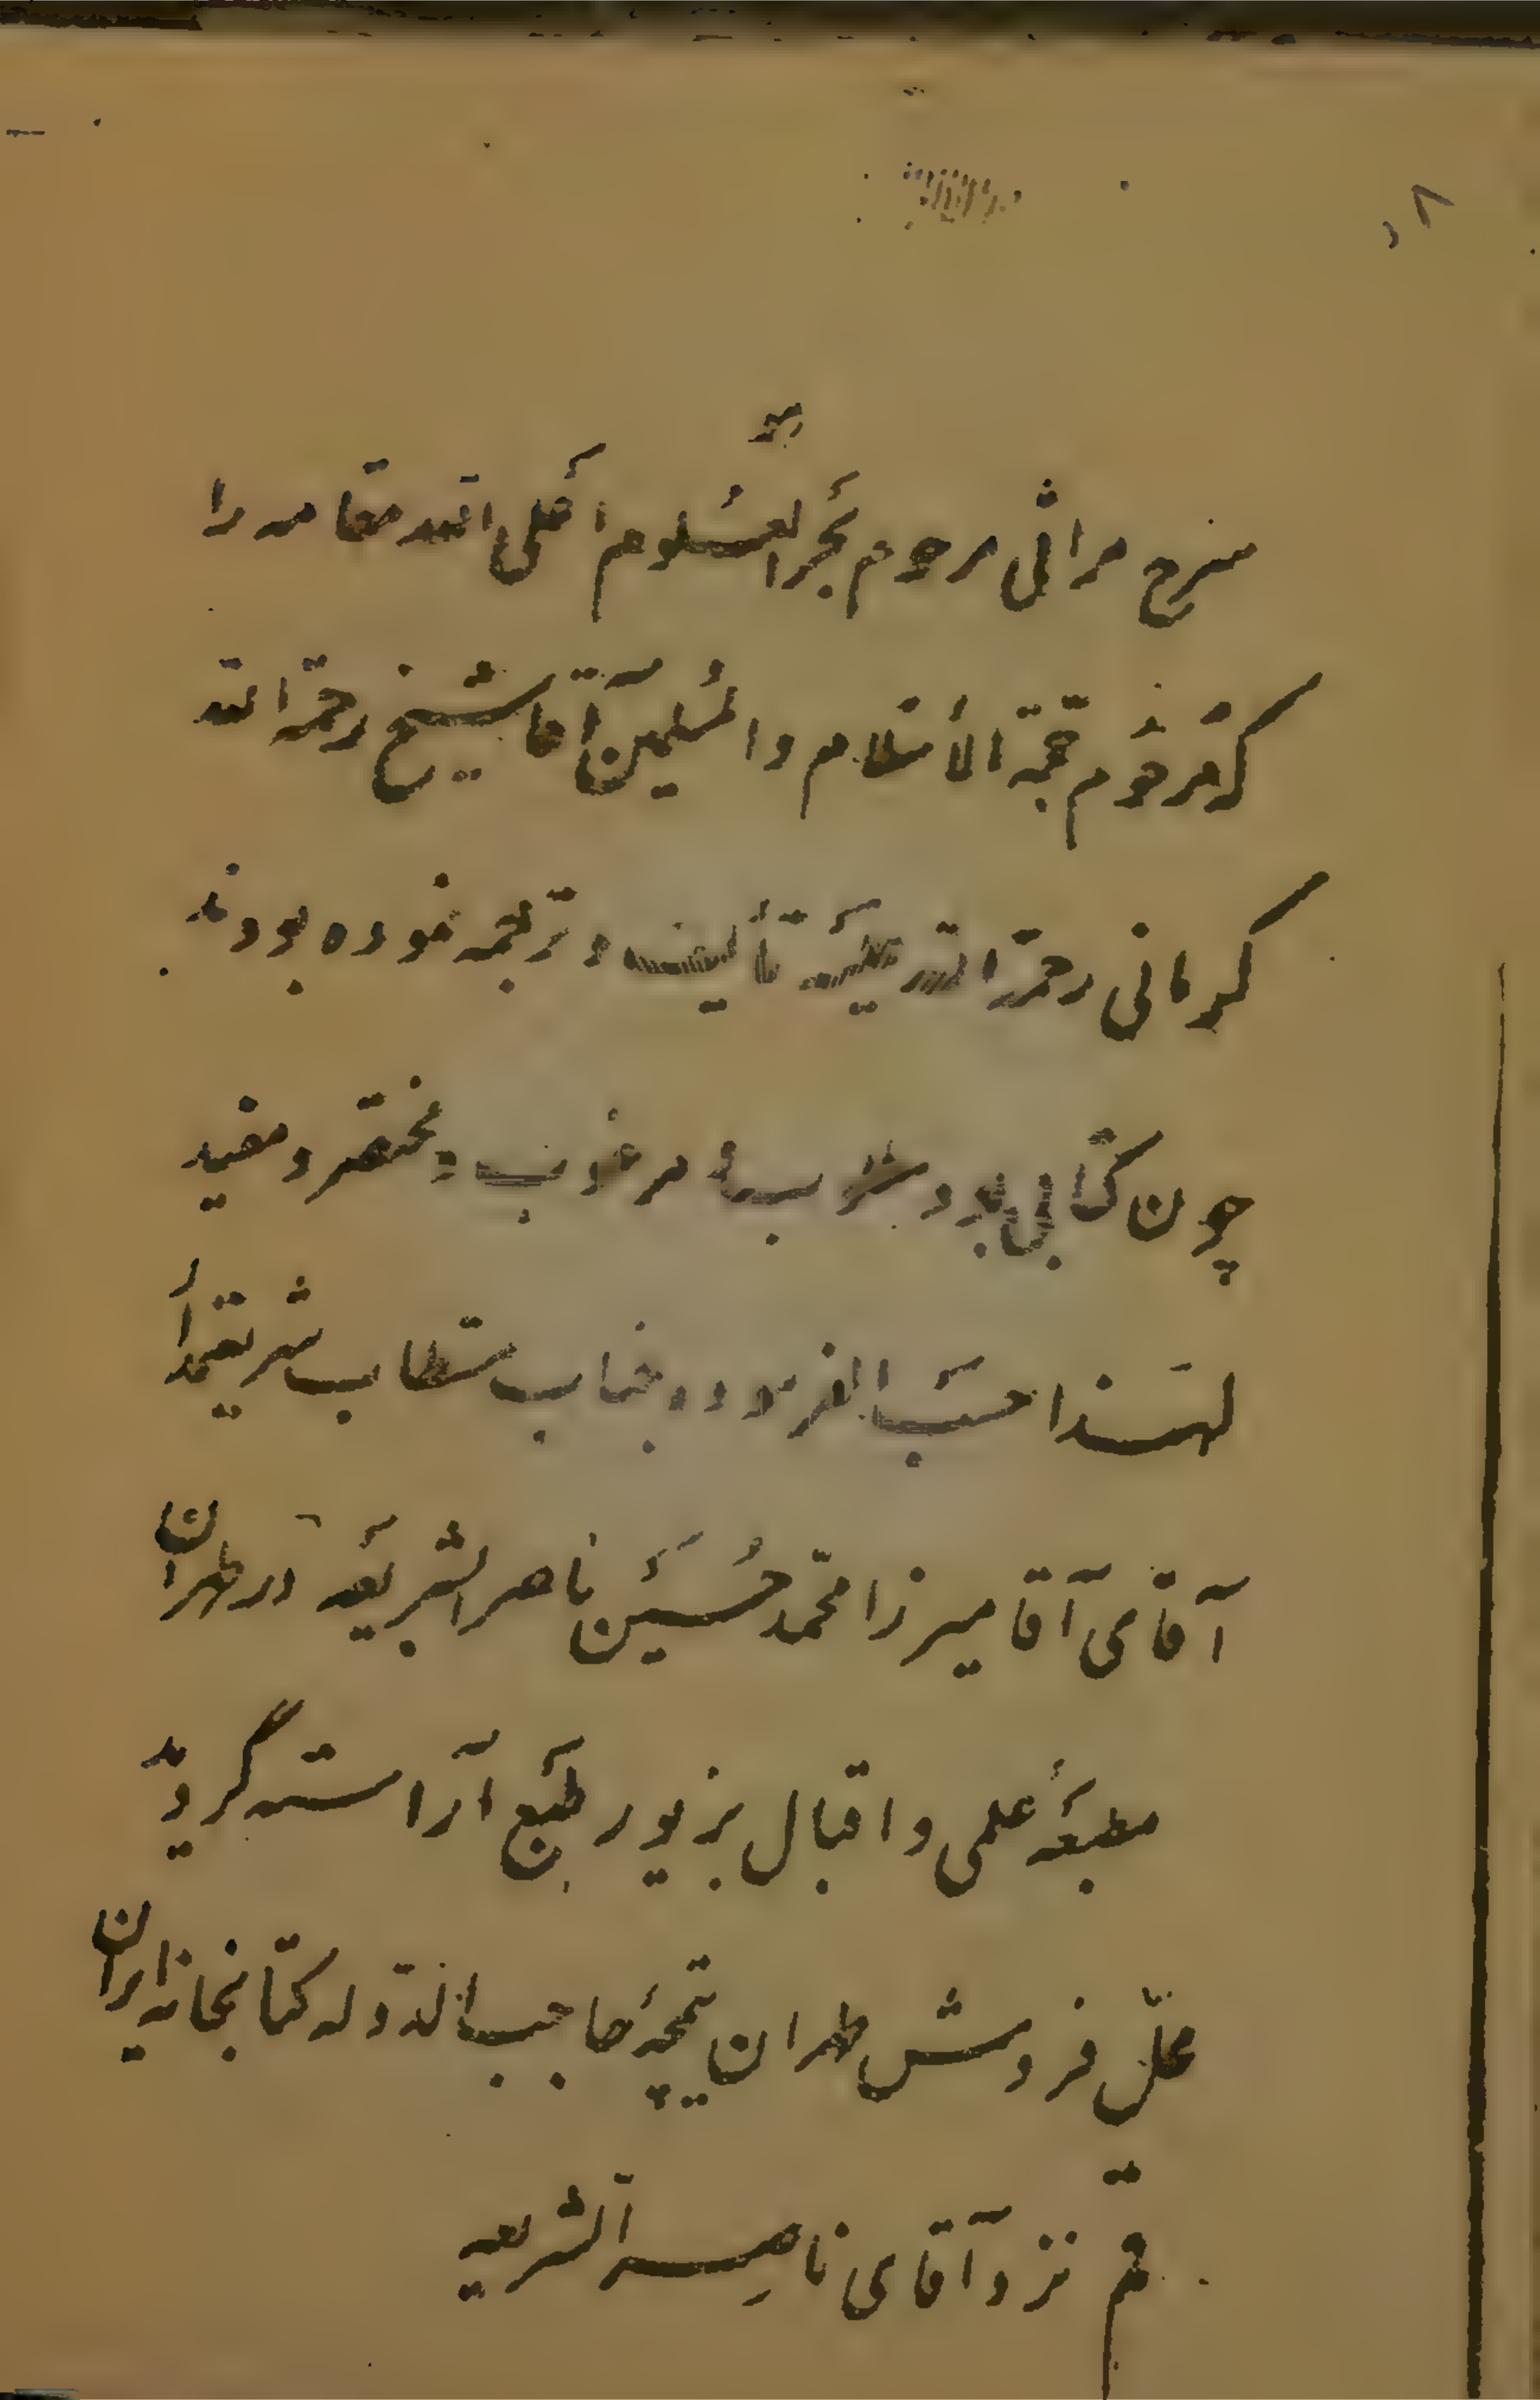 شرح مراثی مرحوم بحرالعلوم اعلی الله مقامه را
که مرحوم حجة الأسلام والمسلمین آقا شیخ رحمة الله
کرمانی رحمة الله علیه تألیف و ترجمه نموده بودند
چون کتابی بود مرغوب و مختصر و مفید
لهذا حسب الفرموده جناب مستطاب شریعتمدار
آقای آقا میرزا محمد حسین ناصر الشریعه در طهران
مطبعهٔ علمی و اقبال بزیور طبع آراسته گردید
محلّ فروش طهران تیمچهٔ حاجب الدوله کتابخانه ایران
قم نزد آقای ناصر الشریعه